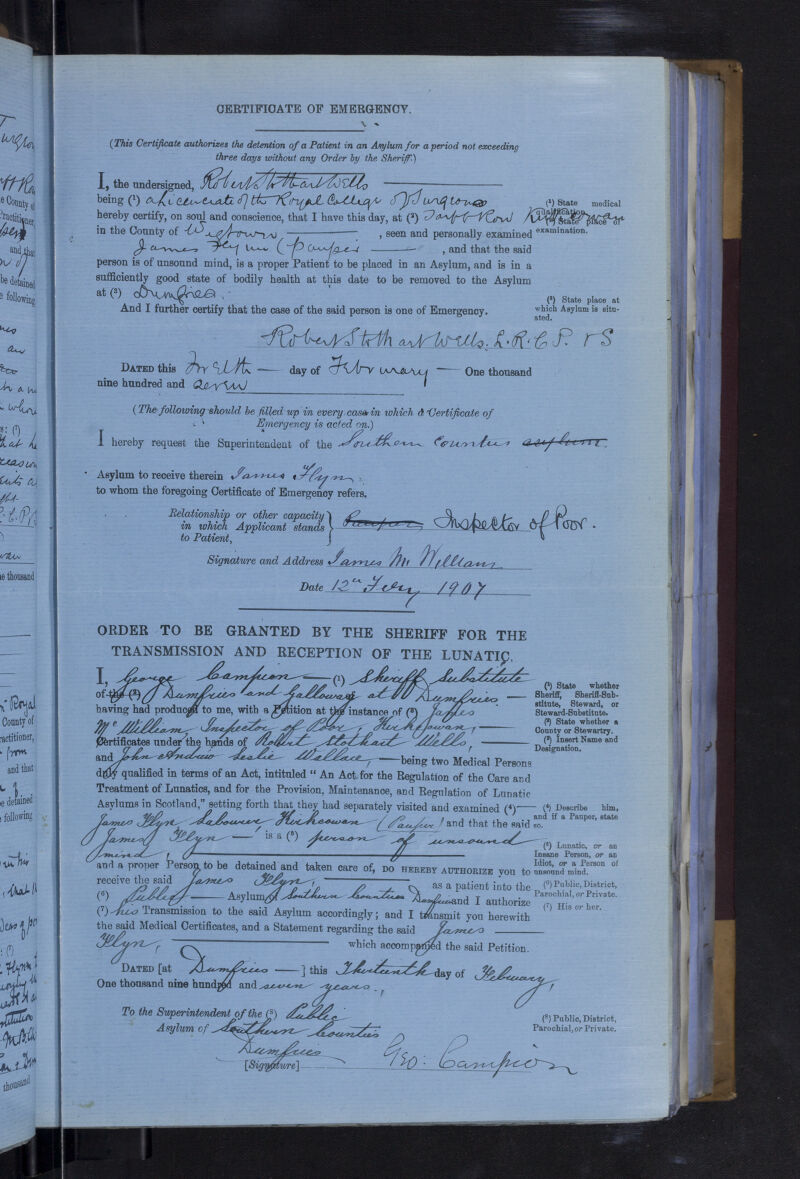 CERTIFICATE OF EMERGENCY.
(This Certificate authorizes the detention of a Patient in an Asylum for a period not exceeding
three days without any Order by the Sheriff.)
I, the undersigned, Robert Stothart Wells
being (¹) a Licenciate of the Royal College of Surgeons
hereby certify, on soul and conscience, that I have this day, at (²) Kirkcowan
in the County of Wigtown, seen and personally examined
James Flynn (Pauper, and that the said
person is of unsound mind, is a proper Patient to be placed in an Asylum, and is in a
sufficiently good state of bodily health at this date to be removed to the Asylum
at (³) Dumfries.
And I further certify that the case of the said person is one of Emergency.
(¹) State medical
qualification.
(²) State place of
examination.
(³) State place at
which Asylum is situ-
ated.
Robert Stothart Wells. L.R.C.P. & S
DATED this Twelth — day of February — One thousand
nine hundred and seven
(The following should be filled up in every case in which a Certificate of
Emergency is acted on.)
I hereby request the Superintendent of the Southern Counties asylum.
Asylum to receive therein James Flyn.
to whom the foregoing Certificate of Emergency refers.
Relationship or other capacity
in which Applicant stands
to Patient,
Inspector of Poor.
Signature and Address James Mc William
Date 12th Feby 1907
ORDER TO BE GRANTED BY THE SHERIFF FOR THE
TRANSMISSION AND RECEPTION OF THE LUNATIC.
I, George Campion — (¹) Sheriff Substitute
of the (²) Dumfries and Galloway at Dumfries —
having had produced to me, with a Petition at the instance of (³) James
McWilliam, Inspector of Poor, Kirkcowan, —
Certificates under the hands of Robert Stothart Wells, —
and John Andrew Leslie Wallace, — being two Medical Persons
duly qualified in terms of an Act, intituled "An Act for the Regulation of the Care and
Treatment of Lunatics, and for the Provision, Maintenance, and Regulation of Lunatic
Asylums in Scotland," setting forth that they had separately visited and examined (⁴)—
James Flyn Labourer Kirkcowan (Pauper) and that the said
James Flyn — is a (⁵) person of unsound
mind,
and a proper Person to be detained and taken care of, DO HEREBY AUTHORIZE you to
receive the said James Flyn, — as a patient into the
(⁶) Public — Asylum of Southern Counties Dumfries and I authorize
(⁷) his Transmission to the said Asylum accordingly; and I transmit you herewith
the said Medical Certificates, and a Statement regarding the said James —
Flyn, — which accompanied the said Petition.
(¹) State whether
Sheriff, Sheriff-Sub-
stitute, Steward, or
Steward-Substitute.
(²) State whether a
County or Stewartry.
(³) Insert Name and
Designation.
(⁴) Describe him,
and if a Pauper, state
so.
(⁵) Lunatic, or an
Insane Person, or an
Idiot, or a Person of
unsound mind.
(⁶) Public, District,
Parochial, or Private.
(⁷) His or her.
DATED [at Dumfries —] this Thirteenth day of February,
One thousand nine hundred and seven years.
To the Superintendent of the (⁸) Public
Asylum of Southern Counties
Dumfries
(⁸) Public, District,
Parochial, or Private.
[Signature] Geo: Campion